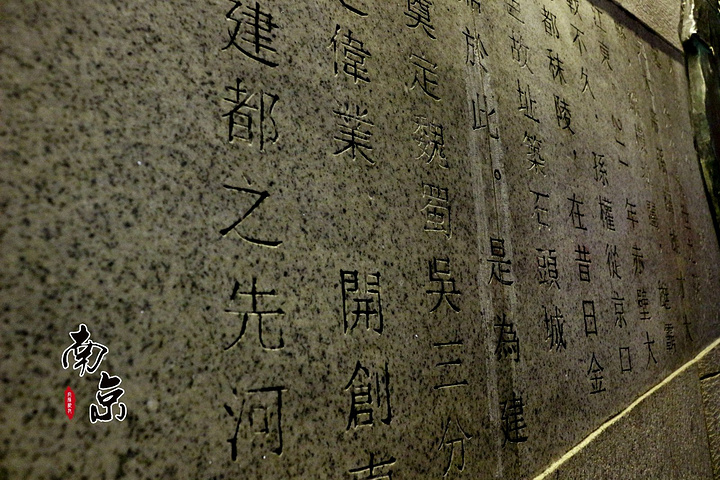 年赤壁大
不久，孫權從京口
都秣陵，在昔日金
故址築石頭城
於此。是為建
奠定魏蜀吳三分
之偉業，開創
建都之先河
南京